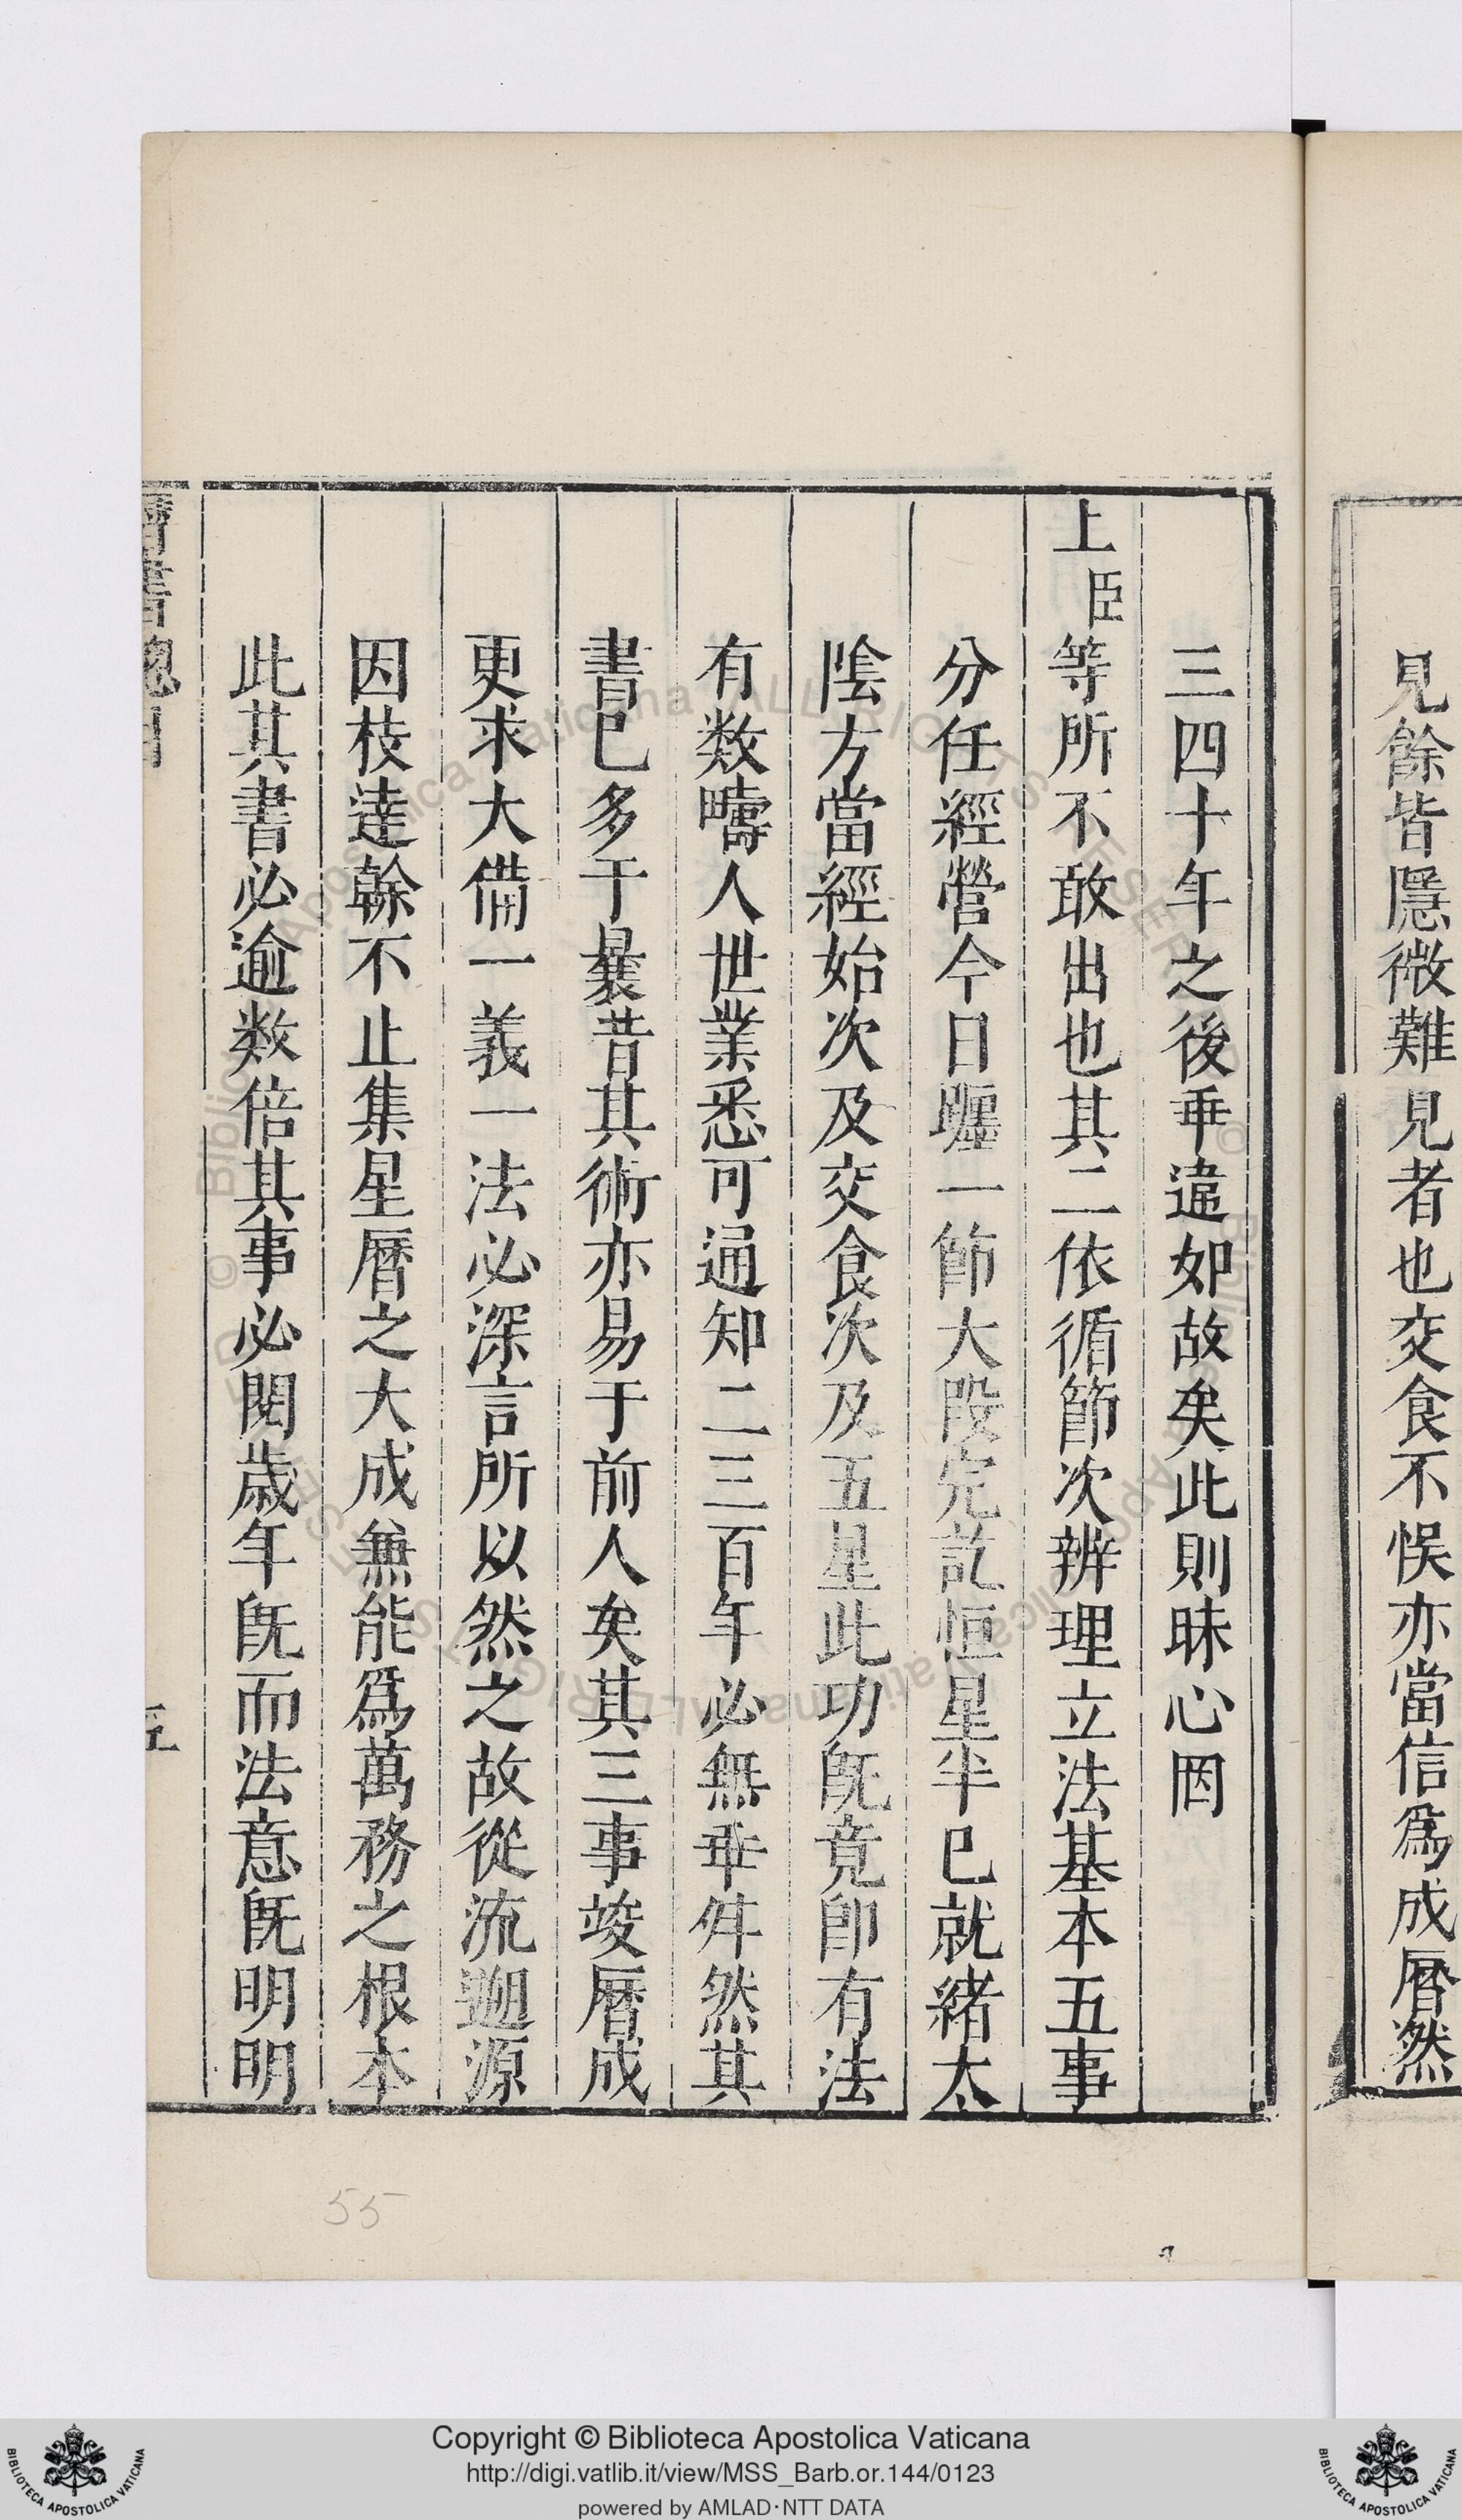 見餘皆隱微難見者也交食不悮亦當信爲成曆然
三四十年之後乖違如故矣此則昧心罔
上臣等所不敢出也其二依循節次辨理立法基本五事
分任經營今日躔一節大段完訖恒星半已就緒太
隂方當經始次及交食次及五星此功旣竟卽有法
有数疇人世業悉可通知二三百年必無乖舛然其
書已多于曩昔其術亦易于前人矣其三事竣曆成
更求大備一義一法必深言所以然之故從流遡源
因枝逹幹不止集星曆之大成兼能爲萬務之根本
此其書必逾数倍其事必閱歲年旣而法意旣明明
曆書總目
五
55
Copyright © Biblioteca Apostolica Vaticana
http://digi.vatlib.it/view/MSS_Barb.or.144/0123
powered by AMLAD·NTT DATA
BIBLIOTECA APOSTOLICA VATICANA
BIBLIOTECA APOSTOLICA VATICANA